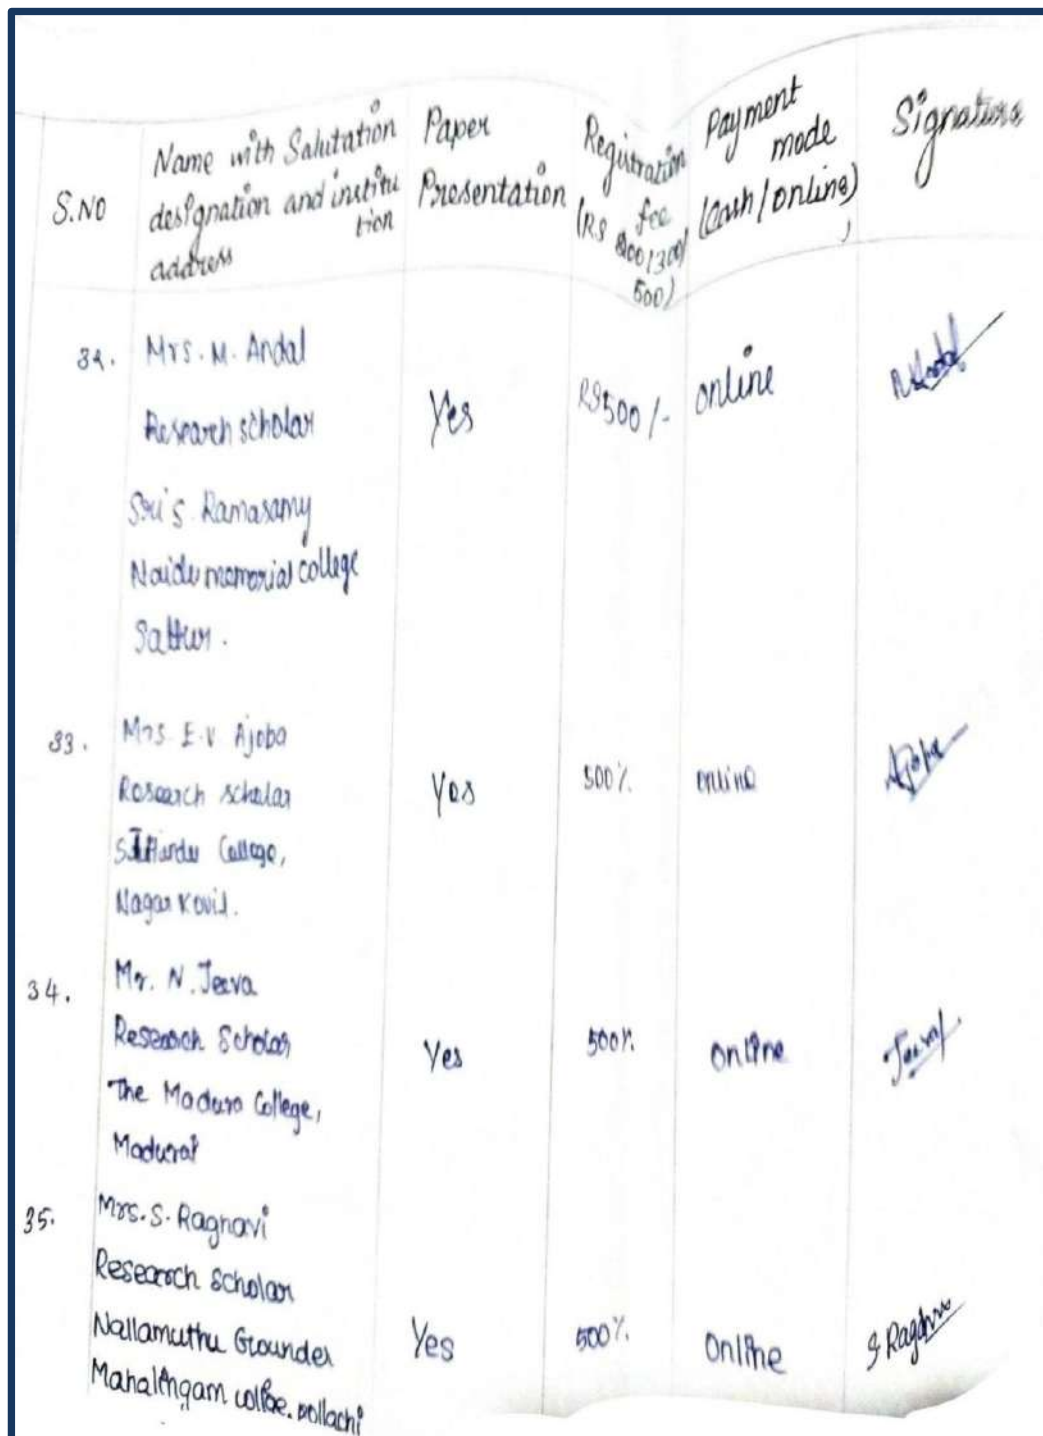 S.NO
Name with Salutation
designation and institu
tion
address
Paper
Presentation
Registration
fee
(RS 200/300/
500)
Payment
mode
(Cash/online)
Signature
32.
Mrs. M. Andal
Research scholar
Sri S. Ramasamy
Naidu memorial college
Sattur.
Yes
RS 500/-
online
33.
Mrs. E.V Ajoba
Research scholar
Hindu College,
Nagar Kovil.
Yes
500%
online
Ajoba
34.
Mr. N. Jeeva
Research Scholar
The Madura College,
Madurai
Yes
500%
online
35.
Mrs. S. Ragnavi
Research Scholar
Nallamuthu Grounder
Mahalingam collge. pollachi
Yes
500%
Online